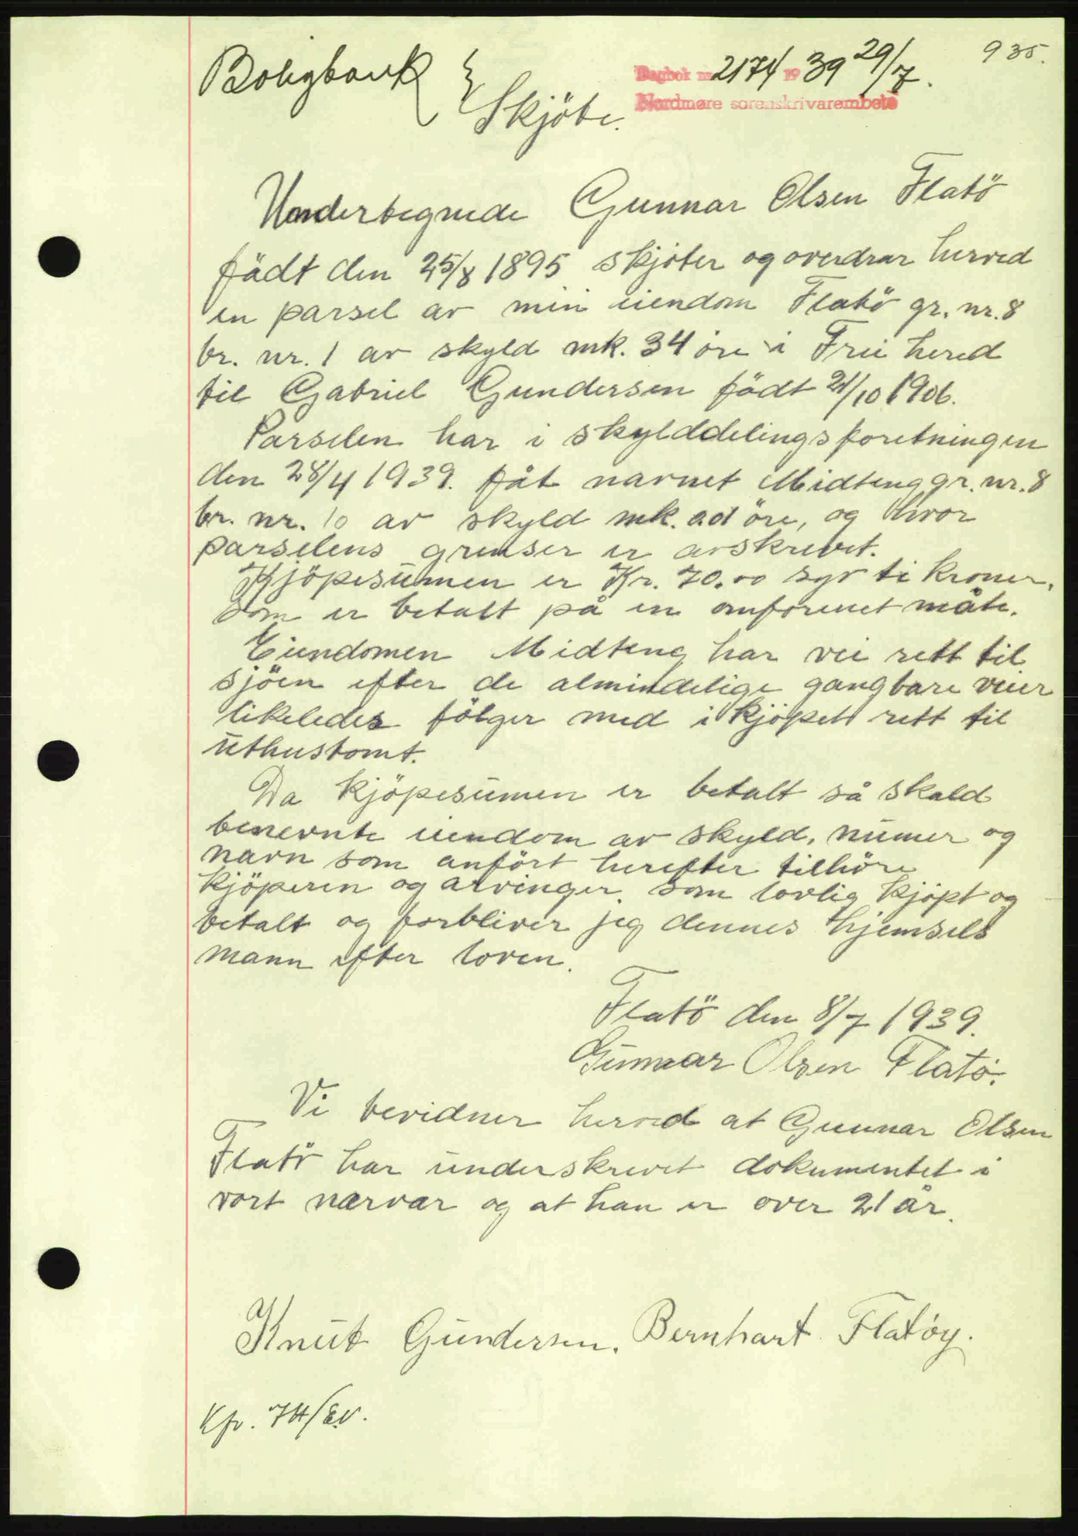 935.
Dagbok nr. 2174 1939 29/7.
Nordmøre sorenskrivarembete
Boligbank
Skjöte.
Undertegnede Gunnar Olsen Flatö
födt den 25/8 1895 skjöter og overdrar herved
en parsel av min eiendom Flatö gr. nr. 8
br. nr. 1 av skyld mk. 34 öre i Frei hered
til Gabriel Gundersen födt 21/10 1906.
Parselen har i skylddelingsforetningen
den 28/4 1939. fåt navnet Midteng gr. nr. 8
br. nr. 10 av skyld mk. 0.01 öre, og hvor
parselens grenser er avskrevet.
Kjöpesummen er Kr. 70.00 syv ti kroner.
som er betalt på en omforenet måte.
Eiendomen Midteng har vei rett til
sjöen efter de almindelige gangbare veier
likeledes fölger med i kjöpet rett til
uthustomt.
Da kjöpesumen er betalt så skald
benevnte eiendom av skyld, numer og
navn som anfört herefter tilhöre
kjöperen og arvinger, som lovlig kjöpt og
betalt og forbliver jeg dennes hjemsels
mann efter loven.
Flatö den 8/7 1939.
Gunnar Olsen Flatö.
Vi bevidner herved at Gunnar Olsen
Flatö har underskrevet dokumentet i
vort nærvær og at han er over 21 år.
Knut Gundersen. Bernhart Flatøy.
Kfr. 74/